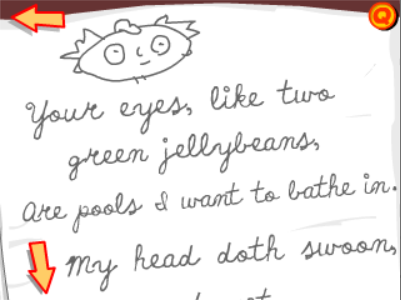 Q
Your eyes, like two
green jellybeans,
Are pools I want to bathe in.
My head doth swoon,